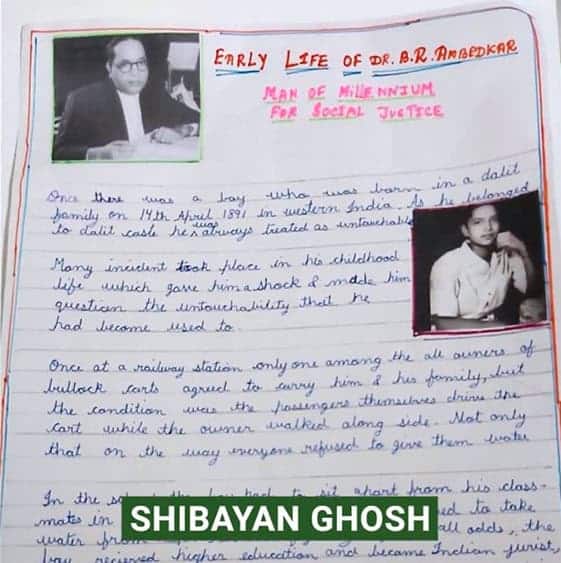 EARLY LIFE OF DR. B.R. AMBEDKAR
MAN OF MILLENNIUM
FOR SOCIAL JUSTICE
Once there was a boy who was born in a dalit
family on 14th April 1891 in western India. As he belonged
to dalit caste he was always treated as untouchable
Many incident took place in his childhood
life which gave him a shock & made him
question the untouchability that he
had become used to.
Once at a railway station only one among the all owners of
bullock carts agreed to carry him & his family, but
the condition was the passengers themselves drive the
cart while the owner walked along side. Not only
that on the way everyone refused to give them water
In the to sit apart from his class-
mates in to take
water from all odds, the
boy recieved higher education and became Indian jurist,
SHIBAYAN GHOSH